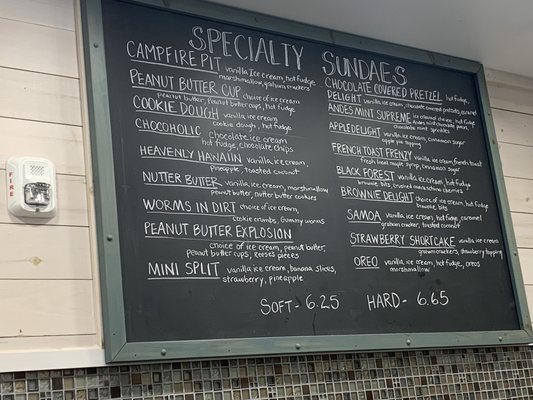 FIRE
SPECIALTY SUNDAES
CAMPFIRE PIT vanilla ice cream, hot fudge,
marshmallow, graham crackers
PEANUT BUTTER CUP choice of ice cream
peanut butter, Peanut butter cups, hot fudge
COOKIE DOUGH vanilla ice cream
cookie dough, hot fudge
CHOCOHOLIC chocolate ice cream
hot fudge, chocolate chips
HEAVENLY HAWAIIN vanilla, ice cream,
pineapple, toasted coconut
NUTTER BUTTER vanilla, ice cream, marshmallow
peanut butter, nutter butter cookies
WORMS IN DIRT choice of ice cream,
cookie crumbs, Gummy worms
PEANUT BUTTER EXPLOSION
choice of ice cream, peanut butter,
Peanut butter cups, reeses pieces
MINI SPLIT vanilla ice cream, banana slices,
strawberry, pineapple
CHOCOLATE COVERED PRETZEL hot fudge,
DELIGHT vanilla ice cream, chocolate covered pretzels, caramel
ANDES MINT SUPREME ice cream choice, hot fudge,
andes mint chocolate pieces,
chocolate mint sprinkles
APPLE DELIGHT vanilla ice cream, cinnamon sugar
apple pie topping
FRENCH TOAST FRENZY vanilla, ice cream, french toast
fresh local maple syrup, cinnamon sugar
BLACK FOREST vanilla ice cream, hot fudge
brownie bits, crushed maraschino cherries
BROWNIE DELIGHT choice of ice cream, hot fudge
brownie bits
SAMOA vanilla, ice cream, hot fudge, caramel
graham cracker, toasted coconut
STRAWBERRY SHORTCAKE vanilla, ice cream
graham crackers, strawberry topping
OREO vanilla, ice cream, hot fudge, oreos
marshmallow
SOFT- 6.25 HARD- 6.65